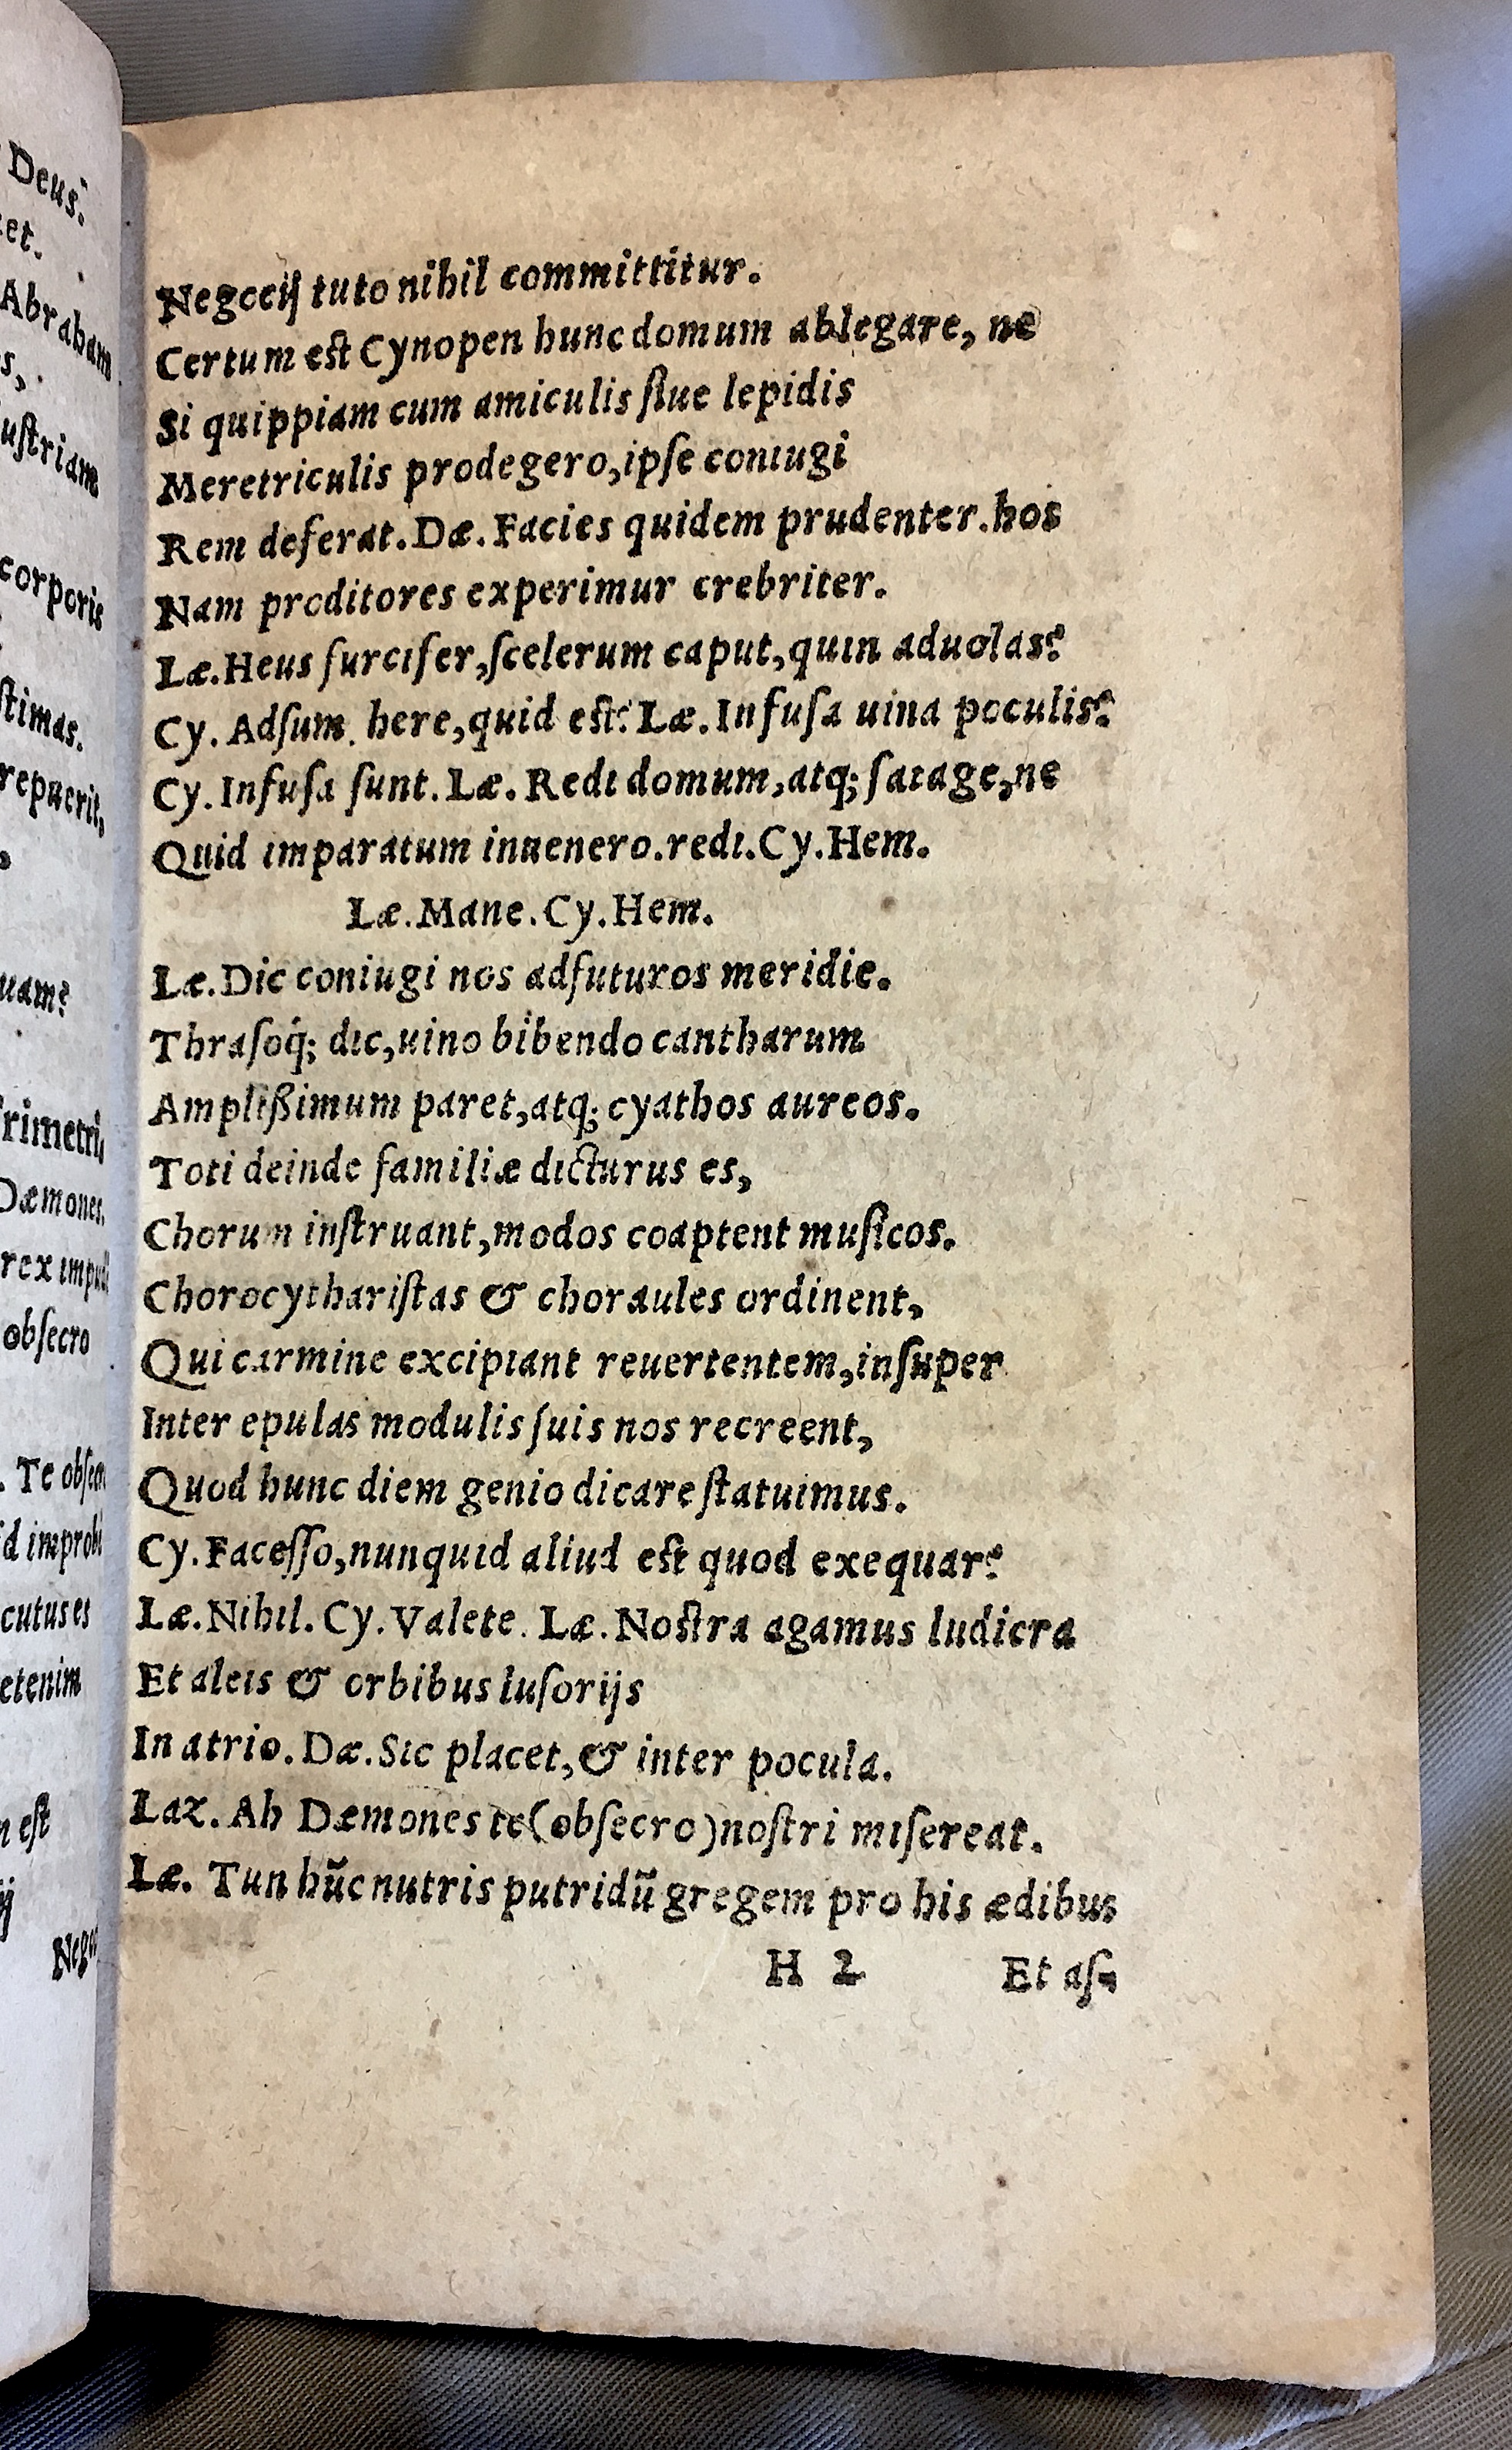 Deus.
et.
Abraham
s,
ustriam
corporis
stimas.
repuerit,
uam?
rimetri,
Dæmones.
rex impu
obsecro
. Te obsec
d improbi
cutus es
etenim
n est
ij
Nego
Negocij tuto nihil committitur.
Certum est Cynopen hunc domum ablegare, ne
Si quippiam cum amiculis siue lepidis
Meretriculis prodegero, ipse coniugi
Rem deferat. Dæ. Facies quidem prudenter. hos
Nam proditores experimur crebriter.
Læ. Heus furcifer, scelerum caput, quin aduolas?
Cy. Adsum here, quid est? Læ. Infusa uina poculis?
Cy. Infusa sunt. Læ. Redi domum, atq; satage, ne
Quid imparatum inuenero. redi. Cy. Hem.
Læ. Mane. Cy. Hem.
Læ. Dic coniugi nos adfuturos meridie.
Thrasoq́; dic, uino bibendo cantharum
Amplißimum paret, atq; cyathos aureos.
Toti deinde familiæ dicturus es,
Chorum instruant, modos coaptent musicos.
Chorocytharistas & choraules ordinent,
Qui carmine excipiant reuertentem, insuper
Inter epulas modulis suis nos recreent,
Quod hunc diem genio dicare statuimus.
Cy. Facesso, nunquid aliud est quod exequar?
Læ. Nihil. Cy. Valete. Læ. Nostra agamus ludicra
Et aleis & orbibus lusorijs
In atrio. Dæ. Sic placet, & inter pocula.
Laz. Ah Dæmones te (obsecro) nostri misereat.
Læ. Tun hũc nutris putridũ gregem pro his ædibus
H 2 Et as-